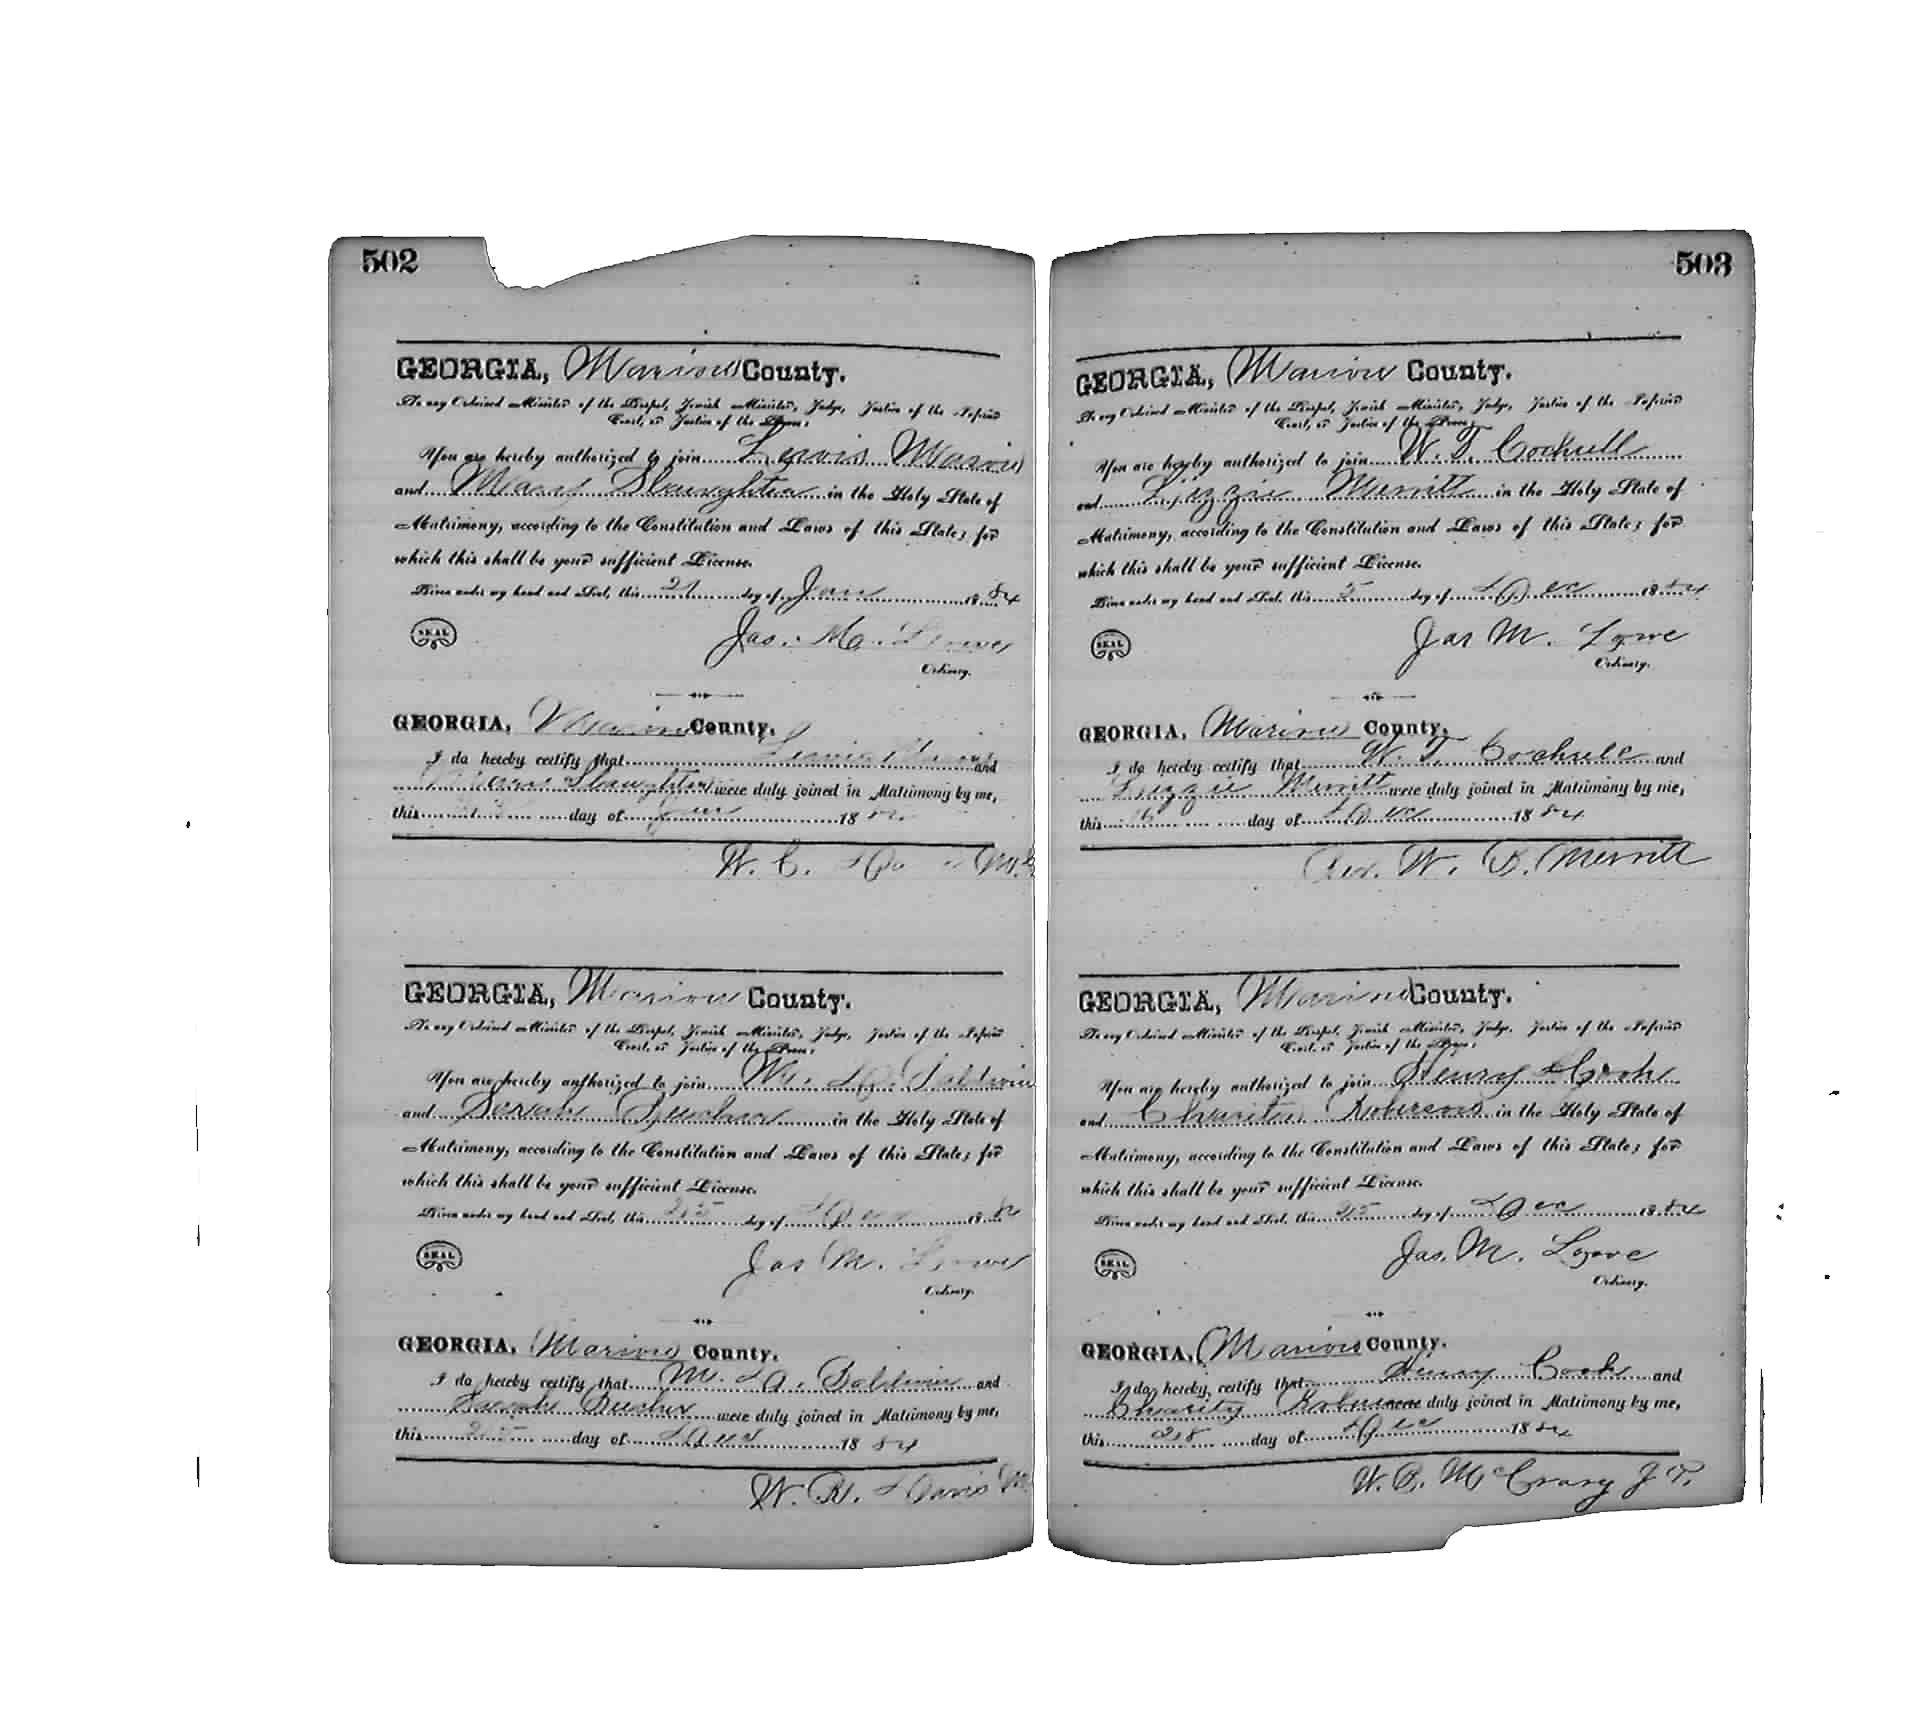 502
GEORGIA, Marion County.
To any Ordained Minister of the Gospel, Jewish Minister, Judge, Justice of the Inferior
Court, or Justice of the Peace:
You are hereby authorized to join Lewis Marion
and Mary Slaughter in the Holy State of
Matrimony, according to the Constitution and Laws of this State; for
which this shall be your sufficient License.
Given under my hand and Seal, this day of Jan 1884
SEAL Jas. M. Lowe
Ordinary.
GEORGIA, Marion County.
I do hereby certify that Lewis and
Slaughter were duly joined in Matrimony by me,
this day of Jan 18
W. C.
GEORGIA, Marion County.
To any Ordained Minister of the Gospel, Jewish Minister, Judge, Justice of the Inferior
Court, or Justice of the Peace:
You are hereby authorized to join Wm. D. Baldwin
and Sarah in the Holy State of
Matrimony, according to the Constitution and Laws of this State; for
which this shall be your sufficient License.
Given under my hand and Seal, this 25 day of Dec 188
SEAL Jas M. Lowe
Ordinary.
GEORGIA, Marion County.
I do hereby certify that D. Baldwin and
were duly joined in Matrimony by me,
this 25 day of Dec 1884
W. B. Davis
503
GEORGIA, Marion County.
To any Ordained Minister of the Gospel, Jewish Minister, Judge, Justice of the Inferior
Court, or Justice of the Peace:
You are hereby authorized to join W. T. Cockrell
and Lizzie Merritt in the Holy State of
Matrimony, according to the Constitution and Laws of this State; for
which this shall be your sufficient License.
Given under my hand and Seal, this 5 day of Dec 1884
SEAL Jas M. Lowe
Ordinary.
GEORGIA, Marion County.
I do hereby certify that W. T. Cockrell and
Lizzie Merritt were duly joined in Matrimony by me,
this day of Dec 1884
Rev. W. B. Merritt
GEORGIA, Marion County.
To any Ordained Minister of the Gospel, Jewish Minister, Judge, Justice of the Inferior
Court, or Justice of the Peace:
You are hereby authorized to join Henry Cook
and Charity Roberson in the Holy State of
Matrimony, according to the Constitution and Laws of this State; for
which this shall be your sufficient License.
Given under my hand and Seal, this 25 day of Dec 1884
SEAL Jas. M. Lowe
Ordinary.
GEORGIA, Marion County.
I do hereby certify that Henry Cook and
Charity Roberson were duly joined in Matrimony by me,
this 28 day of Dec 1884
W. B. McCrary J P.